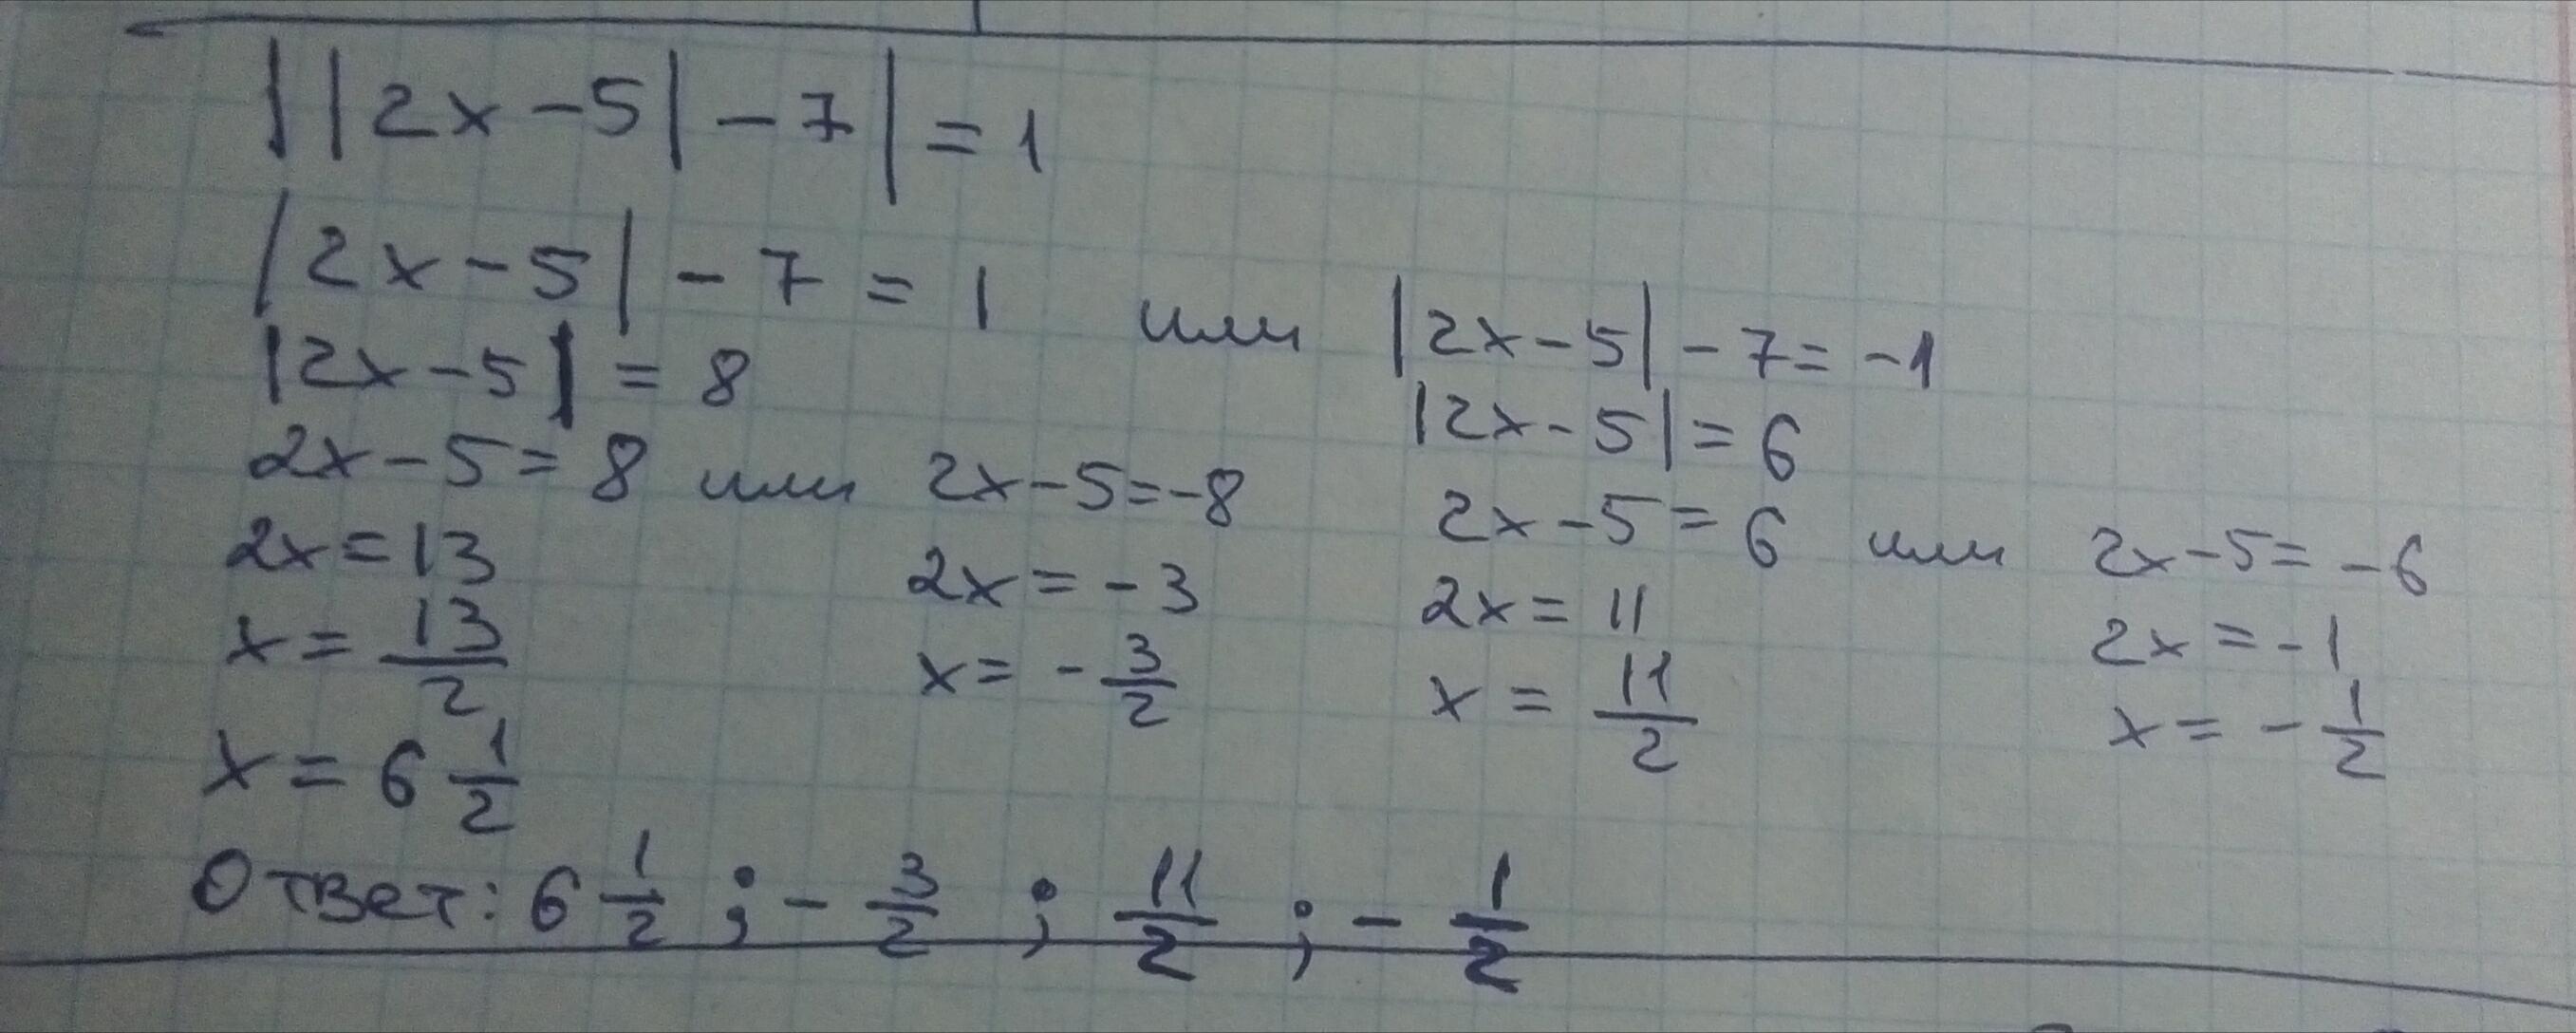 ||2x-5|-7|=1
|2x-5|-7=1 или |2x-5|-7=-1
|2x-5|=8 |2x-5|=6
2x-5=8 или 2x-5=-8 2x-5=6 или 2x-5=-6
2x=13 2x=-3 2x=11 2x=-1
x=13/2 x=-3/2 x=11/2 x=-1/2
x=6 1/2
Ответ: 6 1/2; -3/2; 11/2; -1/2